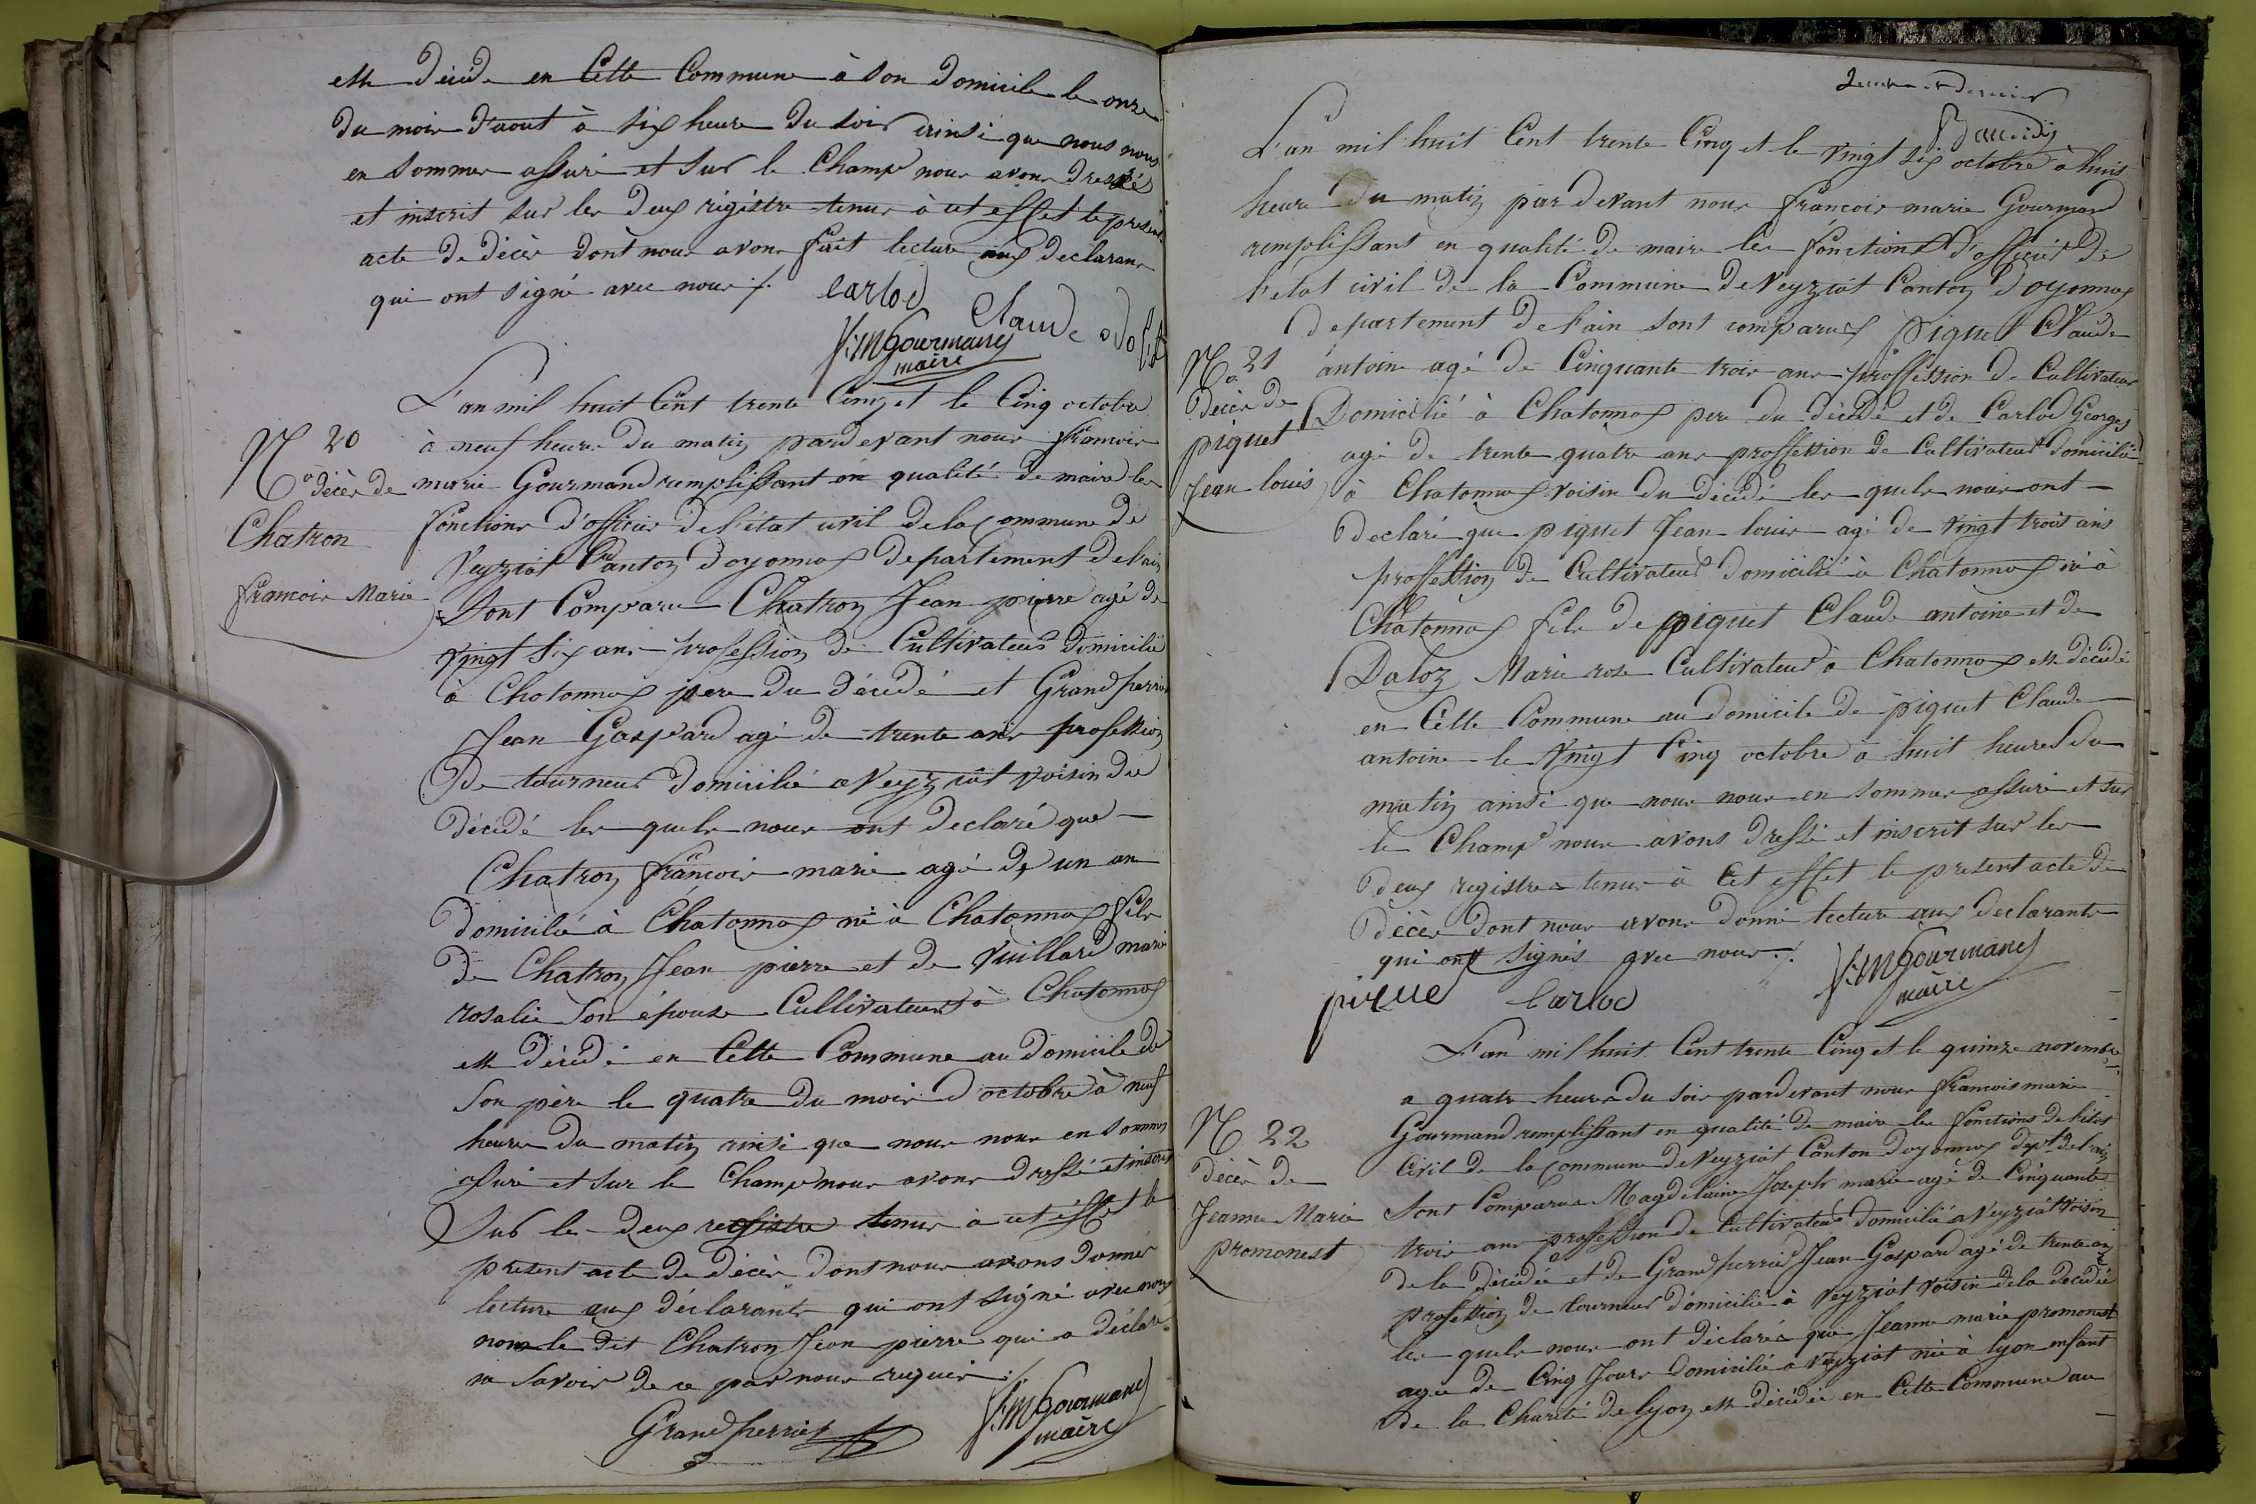 est décédé en Cette Commune à son Domicile le onze
du mois d'aout à six heure du soir ainsi que nous nous
en sommes assuré et sur le Champ nous avons dressé
et inscrit sur les deux régistre tenus à cet effet le présent
acte de décès dont nous avons fait lecture aux declarans
qui ont signé avec nous ./.
carlod
Claude
f:m Gourmand
maire
L'an mil huit Cent trente Cinq et le Cinq octobre
à neuf heures du matin pardevant nous francois
N° 20
décès de
Chatron
francois Marie
marie Gourmand remplissant en qualité de maire les
fonctions d'officier de l'état civil de la Commune de
Veyziat Canton d'oyonnax departement de l'ain
sont Comparu Chatron Jean pierre agé de
vingt six ans profession de Cultivateur domicilié
à Chatonnax pere du décédé et Grandperrier
Jean Gaspard agé de trente ans profession
de tourneur domicilié a Veyziat voisin du
décédé les quels nous ont declaré que
Chatron francois marie agé de un an
domicilié à Chatonnax né à Chatonnax fils
de Chatron Jean pierre et de Vuillard marie
rosalie son épouse Cultivateurs à Chatonnax
est décédé en Cette Commune au domicile de
son père le quatre du mois d'octobre à neuf
heures du matin ainsi que nous nous en sommes
assuré et sur le Champ nous avons dressé et inscrit
sur les deux registre tenus à cet effet le
present acte de décès dont nous avons donné
lecture aux déclarants qui ont signé avec nous
non le dit Chatron Jean pierre qui a déclaré
ne savoir de ce par nous requis ./.
Grandperrier
f:m Gourmand
maire
et dernier
L'an mil huit Cent trente Cinq et le vingt six octobre à huit
heure du matin par devant nous francois marie Gourmand
remplissant en qualité de maire les fonctions d'officier de
l'etat civil de la Commune de Veyziat Canton d'oyonnax
departement de l'ain sont comparus piquet Claude
N° 21
décès de
piquet
Jean louis
antoine agé de Cinquante trois ans proffession de Cultivateur
Domicilié à Chatonnax pere du décédé et de Carlod Georges
agé de trente quatre ans proffession de Cultivateur domicilié
à Chatonnax voisin du décédé les quels nous ont
declaré que piquet Jean louis agé de vingt trois ans
proffession de Cultivateur domicilié à Chatonnax né à
Chatonnax fils de piquet Claude antoine et de
Daloz Marie rose Cultivateur à Chatonnax est décédé
en Cette Commune au domicile de piquet Claude
antoine le vingt Cinq octobre à huit heures du
matin ainsi que nous nous en sommes assuré et sur
le Champ nous avons dressé et inscrit sur les
deux registres tenus à Cet effet le present acte de
décès dont nous avons donné lecture aux declarants
qui ont signés avec nous ./.
pique
carlod
f:m Gourmand
maire
L'an mil huit Cent trente Cinq et le quinze novembre
a quatre heures du soir pardevant nous francois marie
N° 22
décès de
Jeanne Marie
promonest
Gourmand remplissant en qualité de maire les fonctions de l'état
Civil de la Commune de Veyziat Canton d'oyonnax dept de l'ain
sont Comparus Magdelaine Joseph marie agé de Cinquante
trois ans proffession de Cultivateur domicilié a Veyziat voisin
de la décédée et de Grandperrier Jean Gaspard agé de trente ans
proffession de tourneur domicilié à Veyziat voisin de la décédée
les quels nous ont déclarés que Jeanne marie promonest
agée de Cinq Jours domicilié a Veyziat née à lyon enfant
de la Charité de lyon est décédée en Cette Commune au